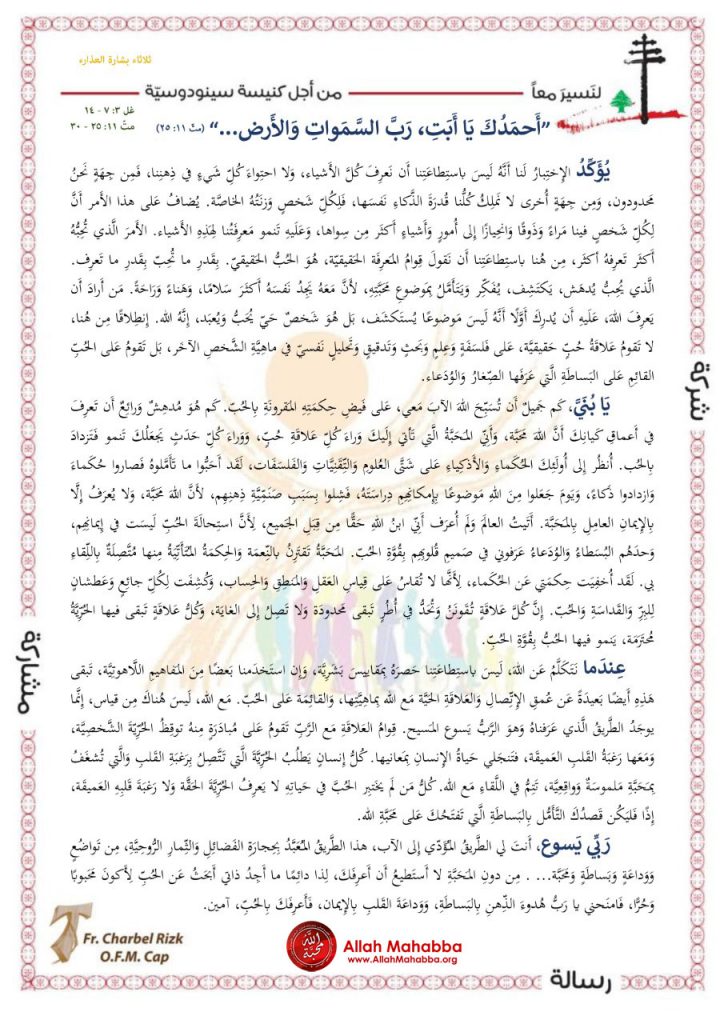 ثلاثاء بشارة العذراء
لنَسيرَ معاً
من أجل كنيسة سينودوسيّة
غل ٣: ٧ - ١٤
متّ ١١: ٢٥ - ٣٠
”أَحمَدُكَ يَا أَبَتِ، رَبَّ السَّمَواتِ وَالأَرض...“ (متّ ١١: ٢٥)
يُؤَكِّدُ الإختِبارُ لَنا أَنَّهُ لَيسَ باستِطاعَتِنا أَن نَعرِفَ كُلَّ الأشياء، وَلا احتِواءَ كُلِّ شَيءٍ في ذِهنِنا، فَمِن جِهَةٍ نَحنُ
محدودون، وَمِن جِهَةٍ أُخرى لا نَملِكُ كُلُّنا قُدرَةَ الذَّكاءِ نَفسَها، فَلِكُلِّ شَخصٍ وَزنَتُهُ الخاصَّة. يُضافُ عَلى هذا الأمر أَنَّ
لِكُلِّ شَخصٍ فينا مَراءً وَذَوقًا وَانحِيازًا إِلى أُمورٍ وَأَشياءٍ أَكثَرَ مِن سِواها، وَعَلَيهِ تَنمو مَعرِفَتُنا لِهَذِهِ الأشياء. الأمرَ الَّذي تُحِبُّهُ
أَكثَر تَعرِفهُ أكثَر، مِن هُنا باستِطاعَتِنا أَن نَقولَ قِوامُ المَعرِفَةِ الحَقيقيَّة، هُوَ الحُبُّ الحَقيقيّ. بِقَدرِ ما تُحِبّ بِقَدرِ ما تَعرِف.
الَّذي يُحِبُّ يُدهَش، يَكتَشِف، يُفَكِّر وَيَتَأَمَّلُ بِمَوضوعِ مَحَبَّتِهِ، لأَنَّ مَعَهُ يَجِدُ نَفسَهُ أَكثَرَ سَلامًا، وَهَناءً وَرَاحَةً. مَن أَرادَ أَن
يَعرِفَ اللهَ، عَلَيهِ أَن يُدرِكَ أَوَّلًا أَنَّهُ لَيسَ مَوضوعًا يُستَكشَف، بل هُوَ شَخصٌ حَيّ يُحَبُّ وَيُعبَد، إِنَّهُ الله. إِنطِلاقًا مِن هُنا،
لا تَقومُ عَلاقَةُ حُبٍّ حَقيقيَّة، عَلى فَلسَفَةٍ وَعِلمٍ وَبَحثٍ وَتَدقيقٍ وَتَحليلٍ نَفسيّ في ماهِيَّةِ الشَّخصِ الآخر، بَل تَقومُ عَلى الحُبِّ
القائِمِ عَلى البَساطَةِ الَّتي عَرَفَها الصِّغارُ وَالوُدَعاء.
يَا بُنَيَّ، كَم جَميلٌ أَن تُسَبِّحَ اللهَ الآبَ مَعي، عَلى فَيضِ حِكمَتِهِ المَقرونَةِ بِالحُبّ. كَم هُوَ مُدهِشٌ وَرائِعٌ أَن تَعرِفَ
في أَعماقِ كَيانِكَ أَنَّ اللهَ مَحَبَّة، وَأَنّي المَحَبَّةُ الَّتي تَأتي إِلَيكَ وَراءَ كُلِّ عَلاقَةِ حُبّ، وَوَراءَ كُلِّ حَدَثٍ يَجعَلُكَ تَنمو فَتَزدادَ
بِالحُب. أُنظُر إِلى أُولَئِكَ الحُكَماءِ وَالأَذكِياءِ عَلى شَتَّى العُلومِ وَالتِّقنِيَّاتِ وَالفَلسَفات، لَقَد أَحَبُّوا ما تَأَمَّلوهُ فَصاروا حُكَماءَ
وَازدادوا ذَكاءً، وَيَومَ جَعَلوا مِنَ اللهِ مَوضوعًا بِإِمكانِهِم دِراسَتَهُ، فَشِلوا بِسَبَبِ صَنَمِيَّةِ ذِهنِهِم، لأَنَّ اللهَ مَحَبَّة، وَلا يُعرَفُ إِلَّا
بِالإيمانِ العامِلِ بِالمَحَبَّة. أَتَيتُ العالَمَ وَلَم أُعرَف أَنّي ابنُ اللهِ حَقًّا مِن قِبَلِ الجَميع، لِأَنَّ استِحالَةَ الحُبِّ لَيسَت في إِيمانِهِم،
وَحدَهُم البُسَطاءُ وَالوُدَعاءُ عَرَفوني في صَميمِ قُلوبِهِم بِقُوَّةِ الحُبّ. المَحَبَّةُ تَقتَرِنُ بِالنِّعمَة وَالحِكمَةُ المُتَأَتِّيَةُ مِنها مُتَّصِلَةٌ بِاللِّقاءِ
بي. لَقَد أُخفِيَت حِكمَتي عَن الحُكَماء، لِأَنَّها لا تُقاسُ عَلى قِياسِ العَقلِ وَالمَنطِقِ وَالحِساب، وَكُشِفَت لِكُلِّ جائِعٍ وَعَطشانٍ
لِلبِرِّ وَالقَداسَةِ وَالحُبّ. إِنَّ كُلَّ عَلاقَةٍ تُقَونَنُ وَتُحَدُّ في أُطُرٍ تَبقى مَحدودَة وَلا تَصِلُ إِلى الغايَة، وَكُلُّ عَلاقَةٍ تَبقى فيها الحُرِّيَّةُ
مُحتَرَمَة، يَنمو فيها الحُبُّ بِقُوَّةِ الحُبّ.
عِندَما نَتَكَلَّمُ عَن اللهَ، لَيسَ باستِطاعَتِنا حَصرَهُ بِمَقاييسَ بَشَرِيَّة، وَإِن استَخدَمنا بَعضًا مِنَ المَفاهيمِ اللَّاهوتِيَّة، تَبقى
هَذِهِ أَيضًا بَعيدَةً عَن عُمقِ الإِتِّصالِ وَالعَلاقَةِ الحَيَّة مَعَ اللهِ بماهِيَّتِها، وَالقائِمَة عَلى الحُبّ. مَع الله، لَيسَ هُناكَ مِن قياس، إِنَّما
يوجَدُ الطَّريقُ الَّذي عَرَفناهُ وَهوَ الرَّبُّ يَسوع المَسيح. قِوامُ العَلاقَةِ مَع الرَّبِّ تَقومُ عَلى مُبادَرَةٍ مِنهُ توقِظُ الحُرِّيَّةَ الشَّخصِيَّة،
وَمَعَها رَغبَةُ القَلبِ العَميقَة، فَتَنجَلي حَياةُ الإِنسانِ بِمَعانيها. كُلُّ إِنسانٍ يَطلُبُ الحُرِّيَّةَ الَّتي تَتَّصِلُ بِرَغبَةِ القَلبِ وَالَّتي تُشغَفُ
بِمَحَبَّةٍ مَلموسَةٌ وَواقِعِيَّة، تَتِمُّ في اللِّقاءِ مَع الله. كُلُّ مَن لَم يَختَبِرِ الحُبَّ في حَياتِهِ لا يَعرِفُ الحُرِّيَّةَ الحَقَّة وَلا رَغبَةَ قَلبِهِ العَميقَة،
إِذًا فَليَكُن قَصدُكَ التَّأَمُّلُ بِالبَساطَةِ الَّتي تَفتَحُكَ عَلى مَحَبَّةِ الله.
رَبِّي يَسوع، أَنتَ لي الطَّريقُ المُؤَدّي إِلى الآب، هذا الطَّريقُ المُعَبَّدُ بِحِجارَةِ الفَضائِلِ وَالثِّمارِ الرُّوحِيَّةِ، مِن تَواضُعٍ
وَوَداعَةٍ وَبَساطَةٍ وَمَحَبَّة... . مِن دونِ المَحَبَّةِ لا أَستَطيعُ أَن أَعرِفَكَ، لِذا دائِمًا ما أَجِدُ ذاتي أَبحَثُ عَن الحُبِّ لِأَكونَ مَحبوبًا
وَحُرًّا، فَامنَحني يا رَبُّ هُدوءَ الذِّهنِ بِالبَساطَةِ، وَوَداعَةَ القَلبِ بِالإيمان، فَأَعرِفَكَ بِالحُبّ، آمين.
شركة
مشاركة
رسالة
Fr. Charbel Rizk
O.F.M. Cap
الله محبة
Allah Mahabba
www.AllahMahabba.org